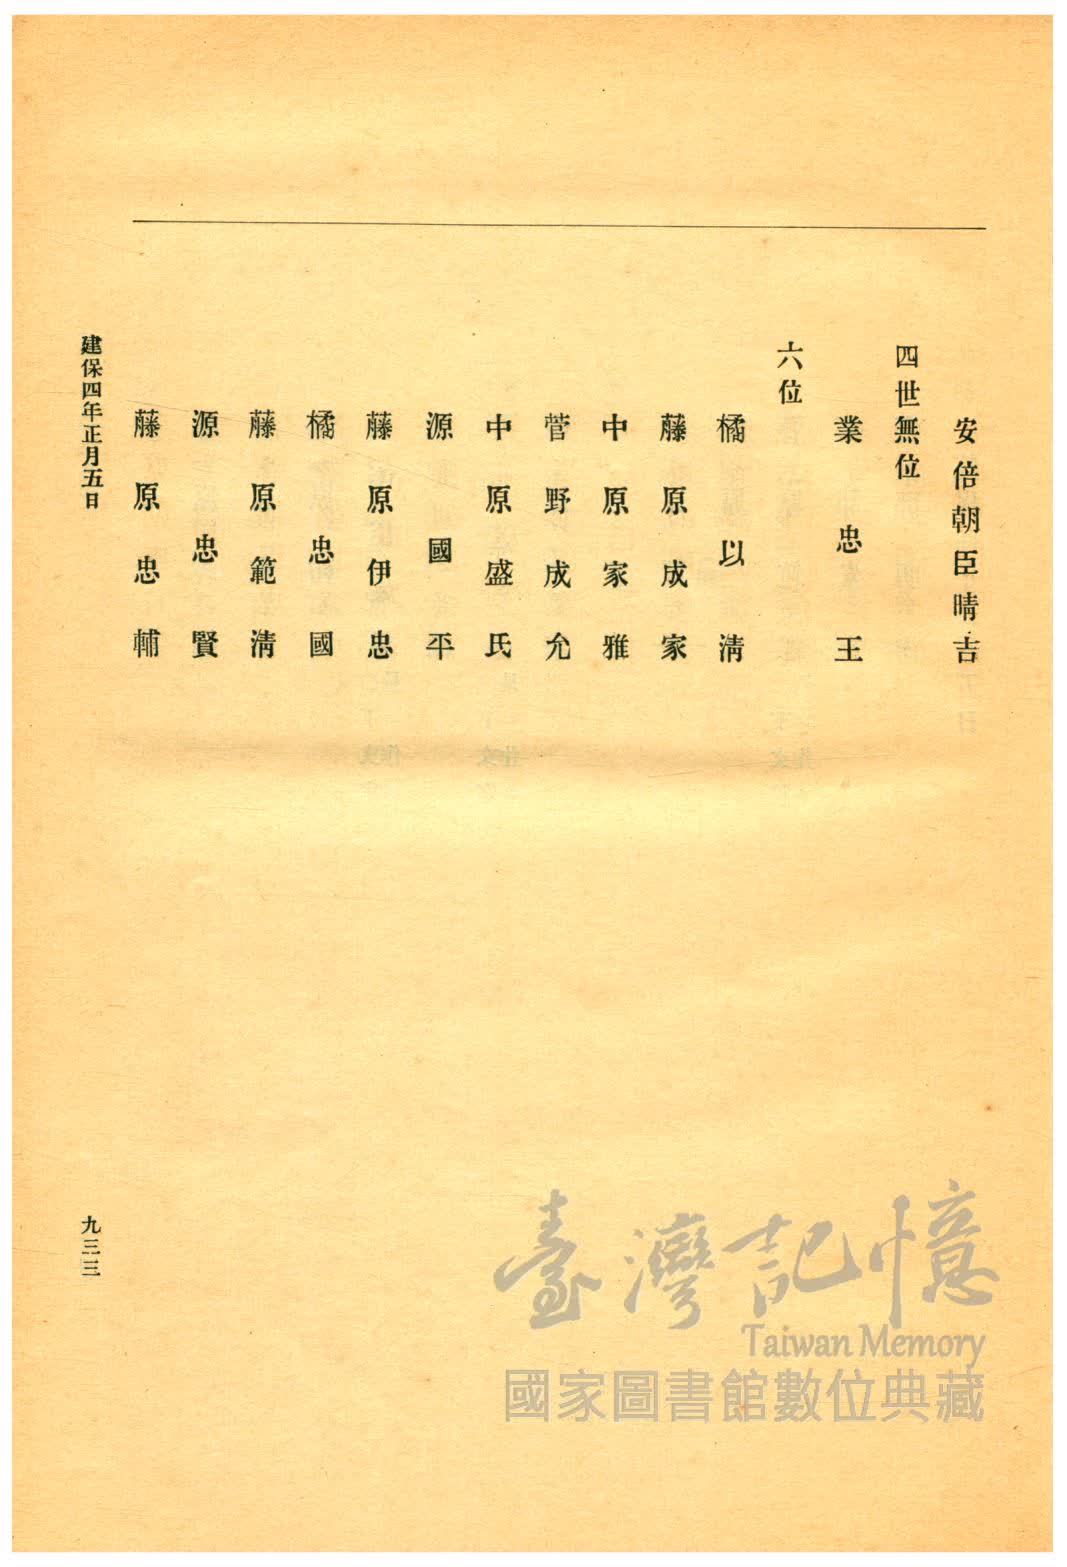 安倍朝臣晴吉
四世無位
業忠王
六位
橘以淸
藤原成家
中原家雅
菅野成允
中原盛氏
源國平
藤原伊忠
橘忠國
藤原範淸
源忠賢
藤原忠輔
建保四年正月五日
九三三
臺灣記憶
Taiwan Memory
國家圖書館數位典藏